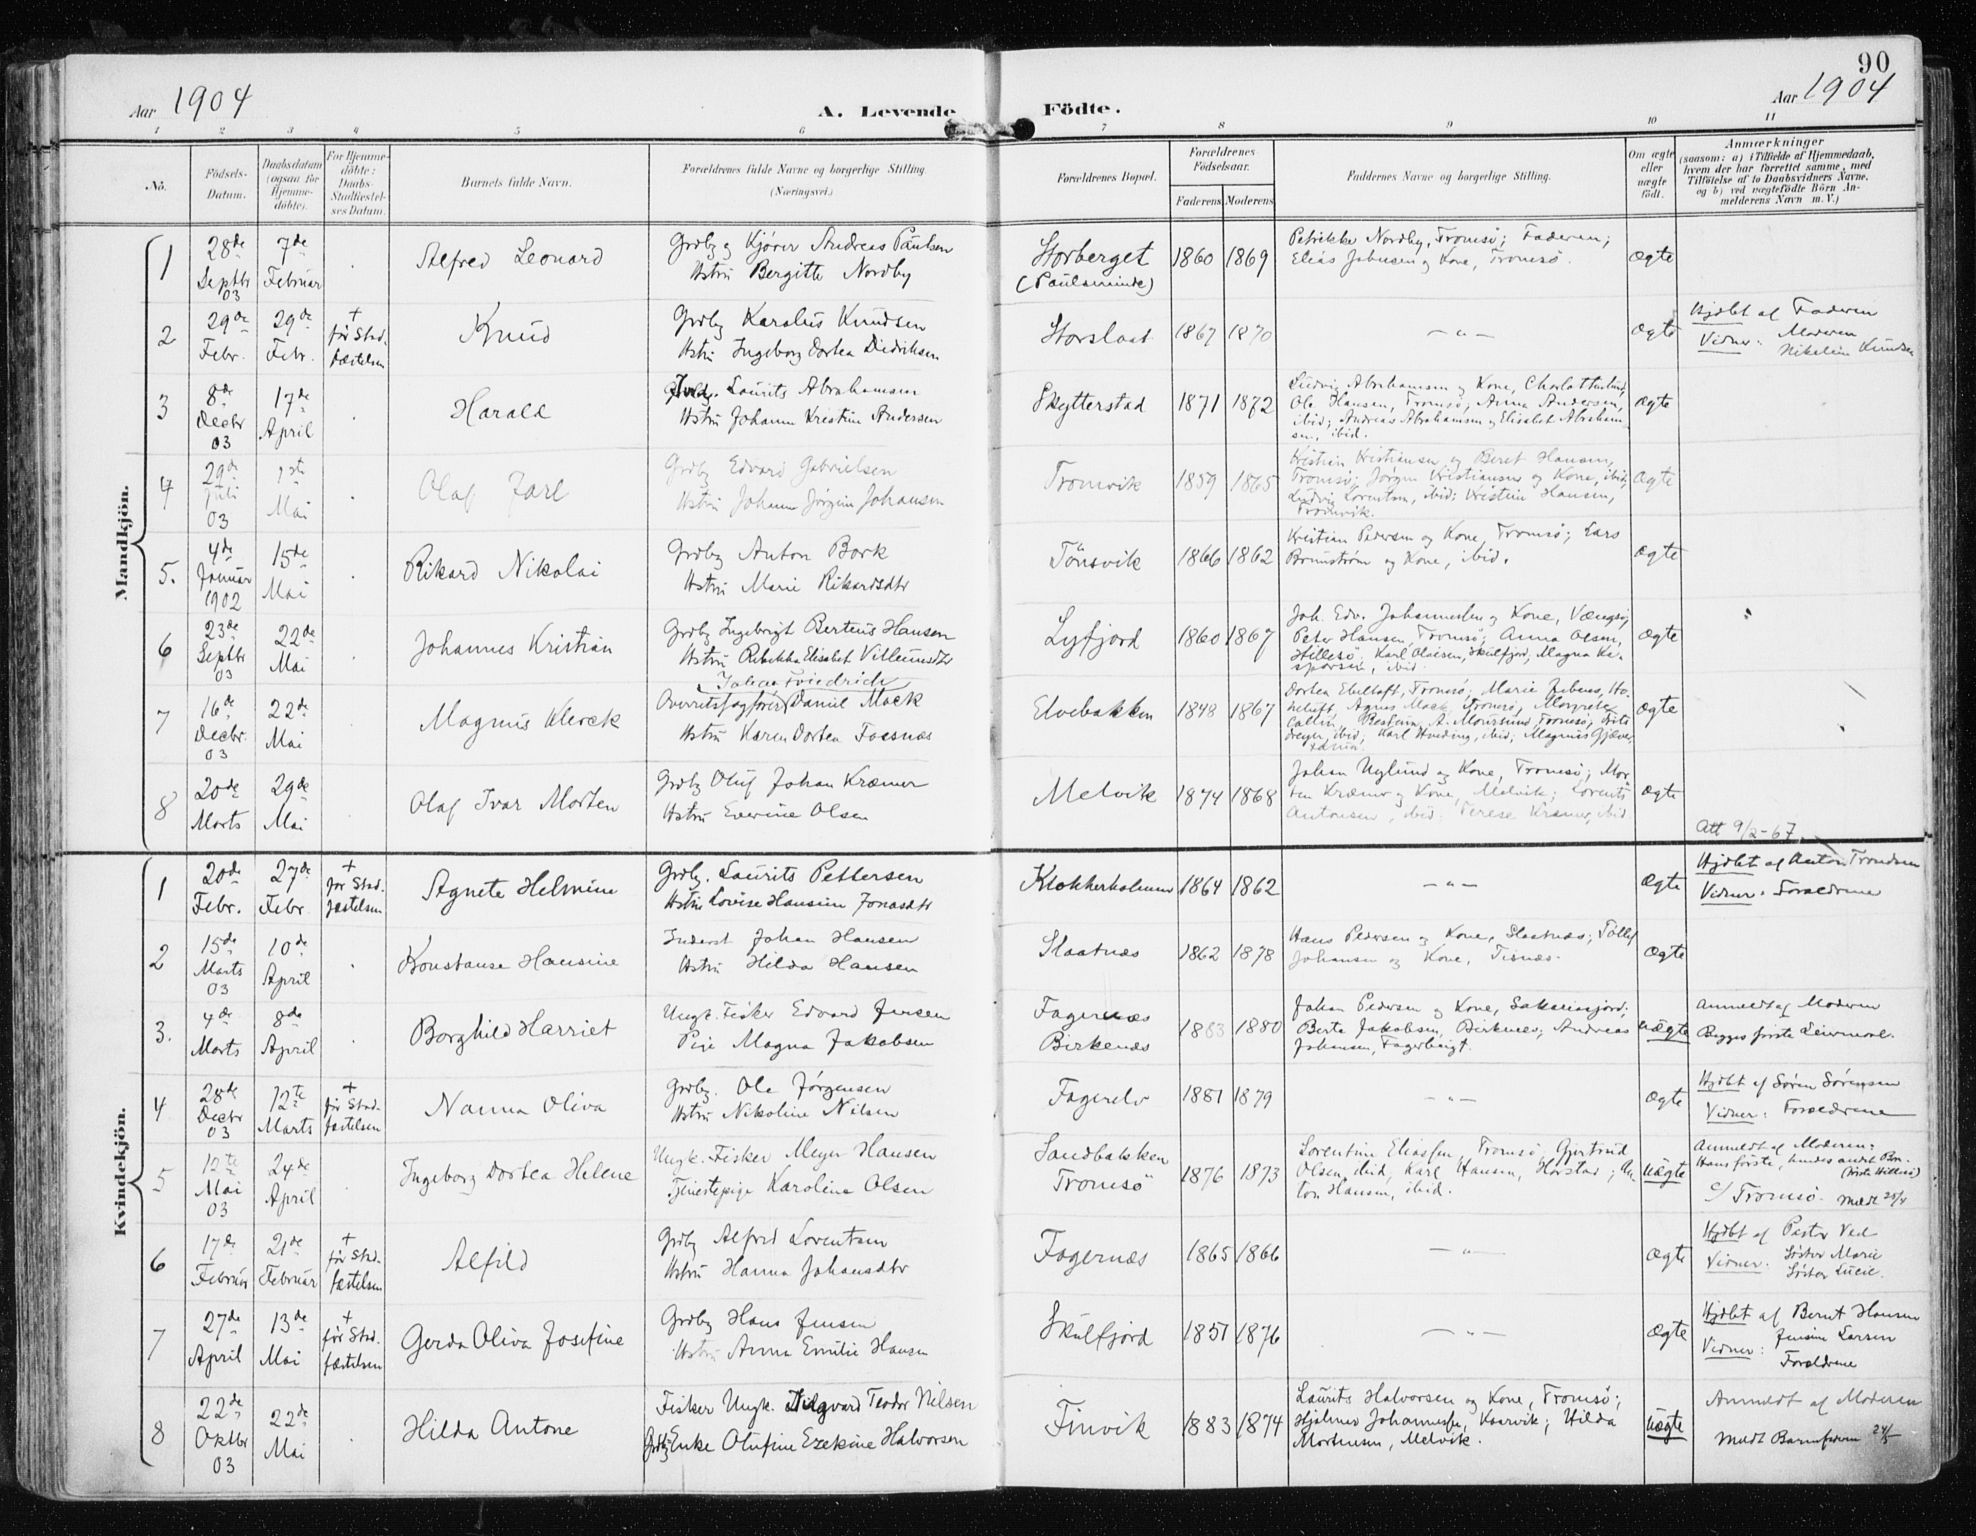 90
Aar 1904
A. Levende Födte.
Aar 1904
1 2 3 4 5 6 7 8 9 10 11
No.
Födsels-Datum.
Daabsdatum (ogsaa for Hjemmedöbte).
For Hjemmedöbte: Daabs-Stadfæstelses Datum.
Barnets fulde Navn.
Forældrenes fulde Navne og borgerlige Stilling (Næringsvei.)
Forældrenes Bopæl.
Forældrenes Födselsaar.
Faderens Moderens
Faddernes Navne og borgerlige Stilling.
Om ægte eller uægte födt.
Anmærkninger
(saasom: a) i Tilfælde af Hjemmedaab,
hvem der har forrettet samme, med
Tilföielse af to Daabsvidners Navne,
og b) ved uægtefödte Börn Anmelderens Navn m. V.)
Mandkjön.
1 28de Septbr 03 7de Februar Alfred Leonard
Grdbr og Kjører Andreas Paulsen
Hstru Bergitte Nordby
Storberget (Paulsminde) 1860 1869
Petrikke Nordby, Tromsø; Faderen;
Elias Johnsen og Kone, Tromsø.
Ægte
2 29de Febr. 29de Febr. + før Stadfæstelsen Knud
Grdbr Karolus Knudsen
Hstru Ingeborg Dortea Didriksen
Storslaat 1867 1870 — " — Ægte
Hjdbt af Faderen
Vidner: Moderen
Nikoline Knudsen
3 8de Decbr 03 17de April Harald
Laurits Abrahamsen
Hstru Johanna Kristine Andersen
Skytterstad 1871 1872
Ludvig Abrahamsen og Kone, Charlottenlund,
Ole Hansen, Tromsø, Anna Andersen,
ibid; Andreas Abrahamsen og Elisabet Abrahamsen, ibid.
Ægte
4 29de Juli 03 1ste Mai Olaf Jarl
Grdbr Edvard Gabrielsen
Hstru Johanna Jørgine Johansen
Tromvik 1859 1865
Kristian Kristiansen og Beret Hansen,
Tromsø; Jørgen Kristiansen og Kone, ibid;
Ludvig Lorentsen, ibid; Kristine Hansen,
Tromvik.
Ægte
5. 4de Januar 1902 15de Mai Rikard Nikolai
Grdbr Anton Bork
Hstru Marie Rikardsdtr
Tönsvik 1866 1862
Kristian Pedersen og Kone, Tromsø; Lars
Brunstrøm og Kone, ibid.
Ægte
6 23de Septbr 03 22de Mai Johannes Kristian
Grdbr Ingebrigt Berteus Hansen
Hstru Rebekka Elisabet Villumsdtr
Lyfjord 1860 1867
Joh. Edv. Johannesen og Kone, Vængsø;
Peter Hansen, Tromsø; Anna Olsen,
Hillesø, Karl Olaisen, Skulfjord, Magna Kaspersen, ibid.
Ægte
7 16de Decbr. 03 22de Mai Magnus Klerck
Johan Friedrich
Overretssagfører Daniel Mack
Hstru Karen Dortea Foesnæs
Elvebakken 1848 1867
Dortea Ebeltoft, Tromsø; Marie
Agnes Mack, Tromsø,
A. Moursund Tromsø, Frits
Dreyer, ibid; Karl Hveding, ibid; Magnus Gjæver,
Ægte
8 20de Marts 29de Mai Olaf Ivar Morten
Grdbr Oluf Johan Kræmer
Hstru Everine Olsen
Melvik 1874 1868
Johan Nylund og Kone, Tromsø; Morten Kræmer og Kone, Melvik; Lorents
Antonsen, ibid. Terese Kræmer, ibid.
Ægte
Att 9/2-67.
Kvindekjön.
1 20de Febr. 27de Febr. + før Stadfæstelsen Agnete Helmine
Grdbr. Laurits Pettersen
Hstru Lovise Hansine Jonasdtr
Klokkerholmen 1864 1862 — " — Ægte
Hjdbt af Anton Trondsen
Vidner: Forældrene
2 15de Marts 03 10de April Konstanse Hansine
Inderst Johan Hansen
Hstru Hilda Hansen
Slaatnæs 1862 1878
Hans Pedersen og Kone, Slaatnæs; Tollef
Johansen og Kone, Tisnæs.
Ægte
3. 4de Marts 8de April Borghild Harriet
Ungk. Fisker Edvard Jensen
Pige Magna Jakobsen
Fagernæs
Birkenæs 1883 1880
Johan Pedersen og Kone, Sakariasfjord;
Berta Jakobsen, Birknes; Andreas
Johansen, Fagerhaugt.
uægte
Anmeldt af Moderen
Begges første Leiermaal.
4 28de Decbr 03 12te Marts + før Stadfæstelsen Nanna Oliva
Grdbr. Ole Jørgensen
Hstru Nikoline Nilsen
Fagerelv 1881 1879 — " — Ægte
Hjdbt af Søren Sørensen
Vidner: Forældrene
5 12te Mai 03 24de April Ingeborg Dortea Helene
Ungk. Fisker Meyer Hansen
Tjenestepige Karoline Olsen
Sandbakken
Tromsø 1876 1873
Lorentine Eliassen Tromsø, Gjertrud
Olsen, ibid, Karl Hansen, Horstad; Anton Hansen, ibid.
uægte
Anmeldt af Moderen:
Hans første, hendes andet Brn.
(første Hillesø)
o/ Tromsø. Meldt 25/4
6 17de Februar 21de Februar + før Stadfæstelsen Alfild
Grdbr Alfred Lorentsen
Hstru Hanna Johansdtr
Fagernæs 1865 1866 — " — Ægte
Hjdbt af Peter Ved
Vidner: Søster Marie
Søster Lucie.
7 27de April 13de Mai + før Stadfæstelsen Gerda Oliva Josefine
Grdbr Hans Jensen
Hstru Anna Emilie Hansen
Skulfjord 1851 1876 — " — Ægte
Hjdbt af Bernt Hansen
Vidner: Jensine Larsen
Forældrene
8 22de Oktbr 03 22de Mai Hilda Antone
Fisker Ungk. Teodor Nilsen
Enke Olufine Ezekine Halvorsen
Finvik 1883 1874
Laurits Halvorsen og Kone, Tromsø;
Hjalmar Johannessen, Kaarvik; Hilda
Mortensen, Melvik.
uægte
Anmeldt af Moderen
Meldt Barnefaderen 24/5